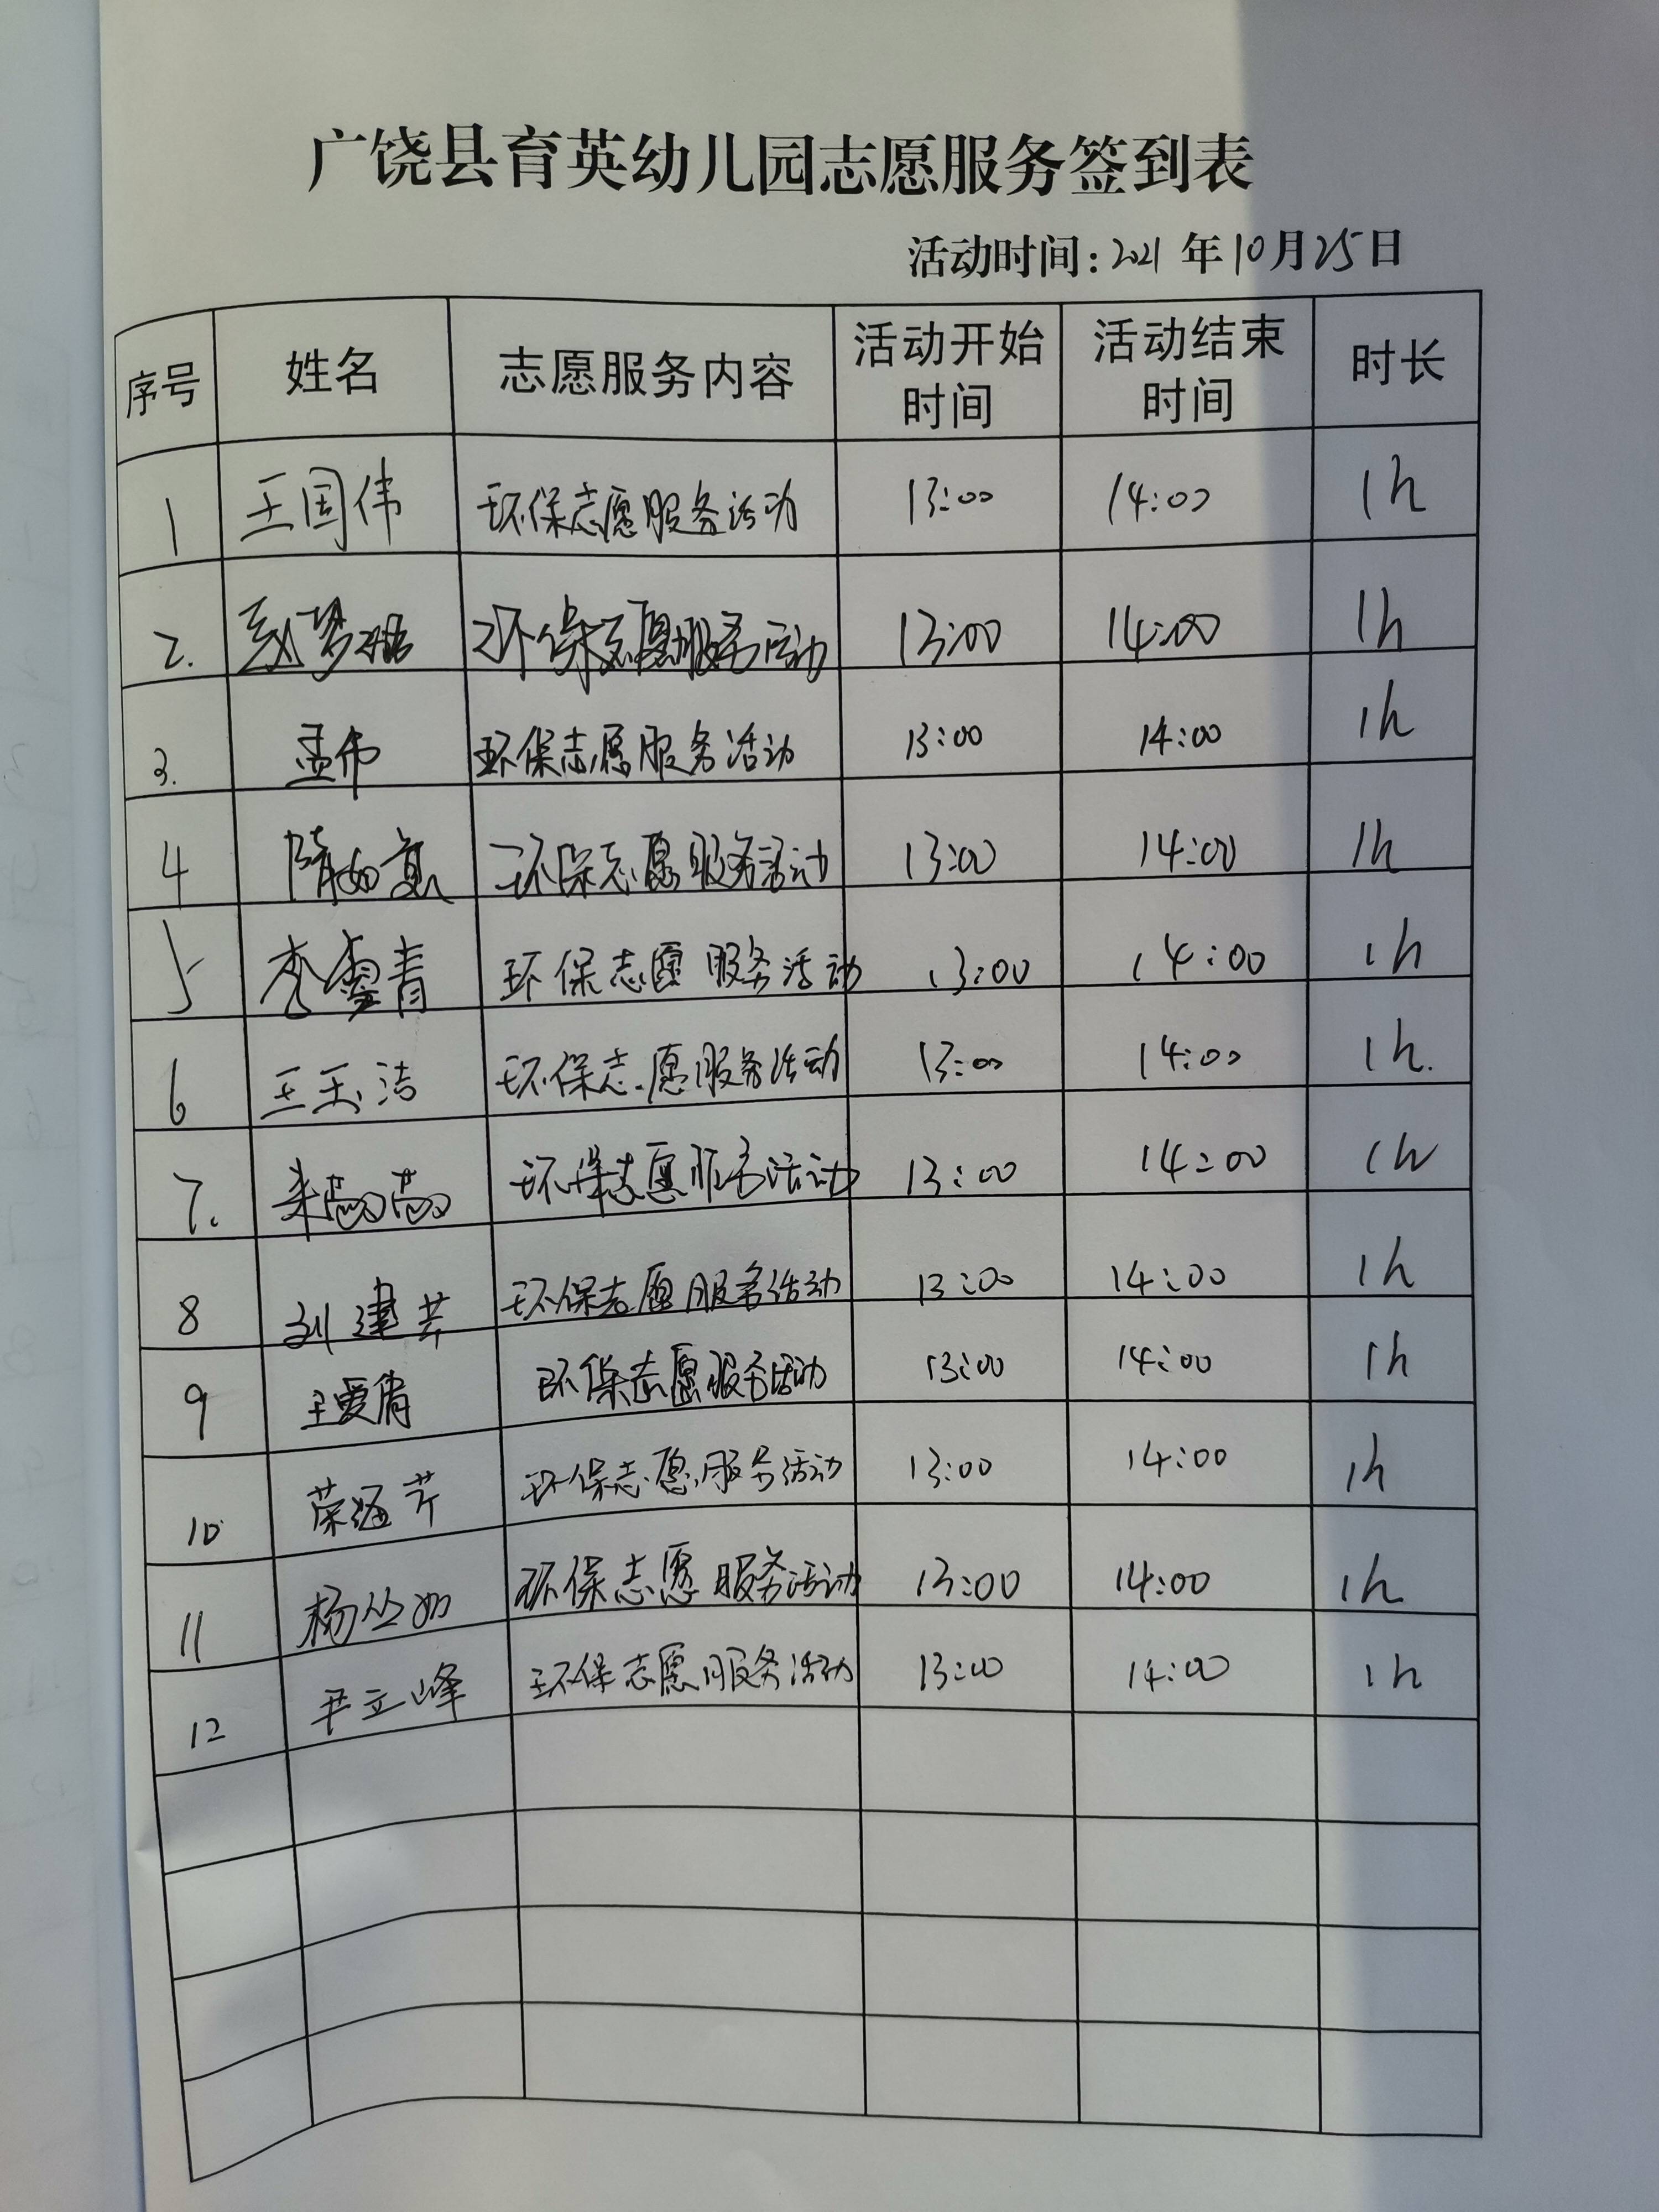 广饶县育英幼儿园志愿服务签到表
活动时间:2021年10月25日
序号 姓名 志愿服务内容 活动开始时间 活动结束时间 时长
1 王国伟 环保志愿服务活动 13:00 14:00 1h
2. 环保志愿服务活动 13:00 14:00 1h
3. 孟伟 环保志愿服务活动 13:00 14:00 1h
4 隋如意 环保志愿服务活动 13:00 14:00 1h
5 李雪青 环保志愿服务活动 13:00 14:00 1h
6 王玉洁 环保志愿服务活动 13:00 14:00 1h.
7. 环保志愿服务活动 13:00 14:00 1h
8 刘建芳 环保志愿服务活动 13:00 14:00 1h
9 王爱倩 环保志愿服务活动 13:00 14:00 1h
10 荣海芹 环保志愿服务活动 13:00 14:00 1h
11 杨丛如 环保志愿服务活动 13:00 14:00 1h
12 尹立峰 环保志愿服务活动 13:00 14:00 1h